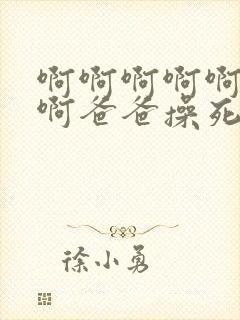 啊啊啊啊啊
啊爸爸操死
徐小勇